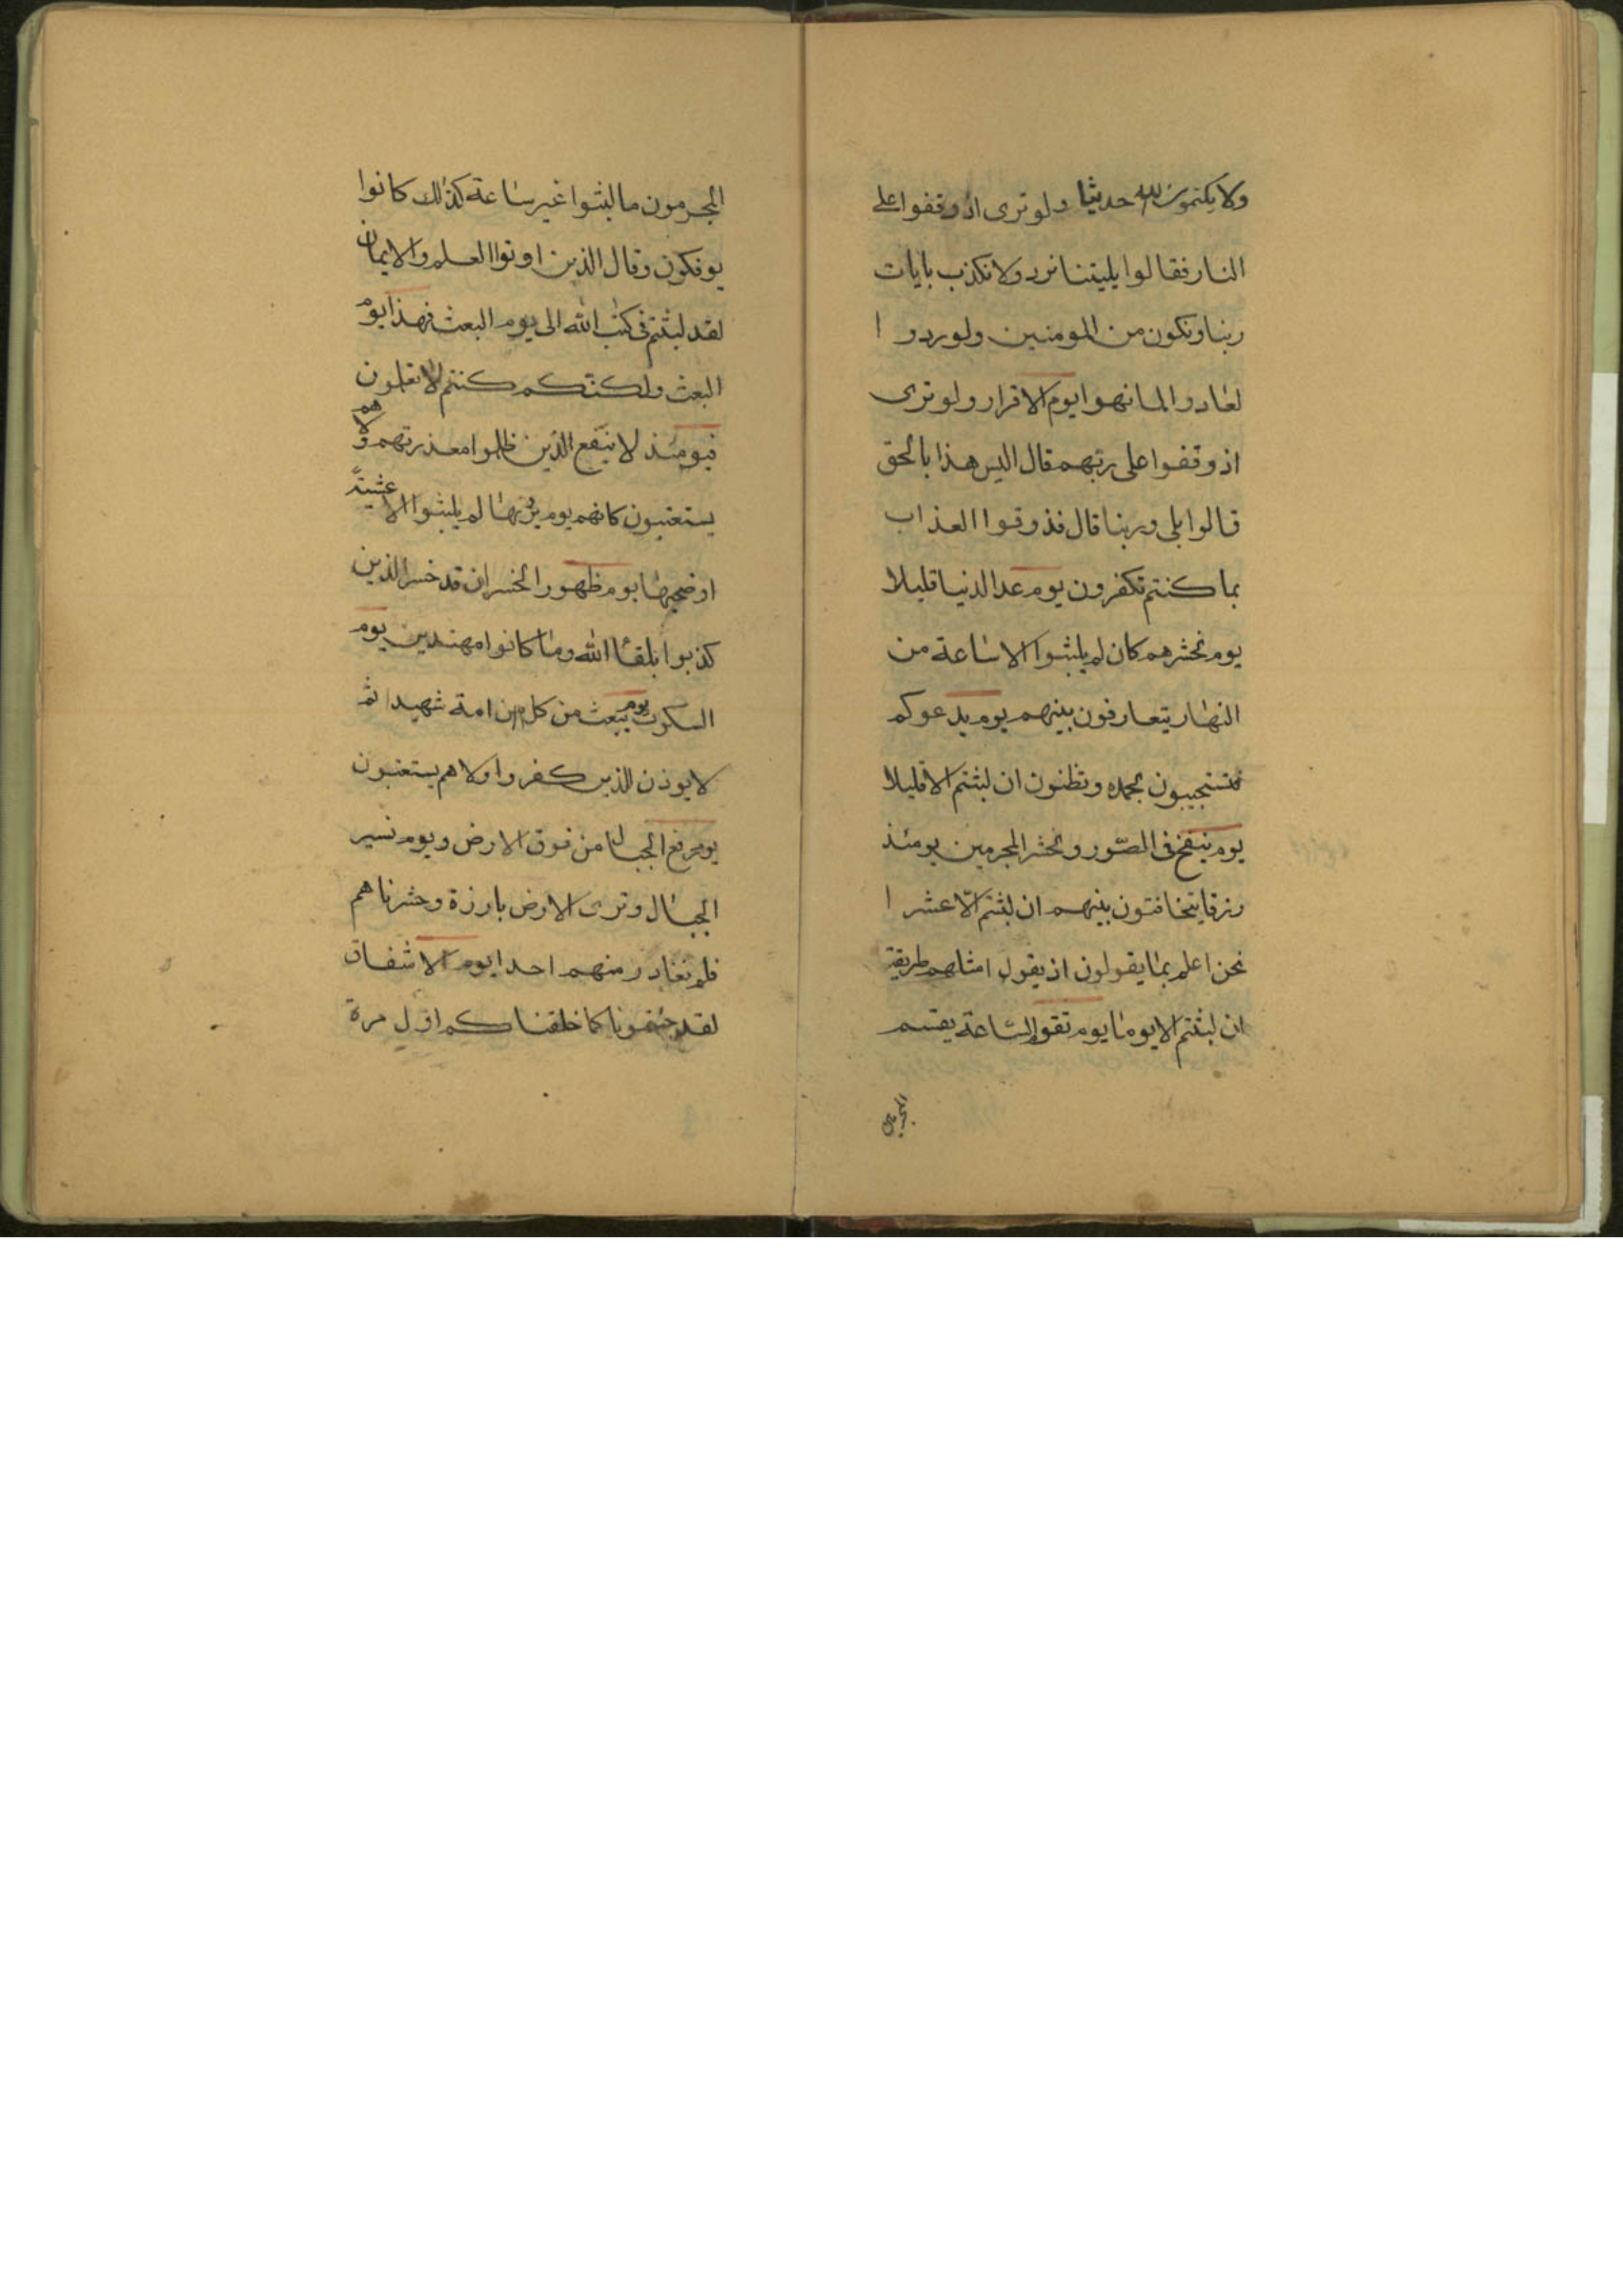 ولا يكتمون الله حديثا ولو ترى اذ وقفوا على
النار فقالوا يليتنا نرد ولا نكذب بايات
ربنا ونكون من المومنين ولو ردوا
لعادوا لما نهوا يوم الاقرار ولو ترى
اذ وقفوا على ربهم قال اليس هذا بالحق
قالوا بلى وربنا قال فذوقوا العذاب
بما كنتم تكفرون يوم عد الدنيا قليلا
يوم نحشرهم كان لم يلبثوا الا ساعة من
النهار يتعارفون بينهم يوم يدعوكم
فتستجيبون بحمده وتظنون ان لبثتم الا قليلا
يوم ينفخ فى الصور ونحشر المجرمين يومئذ
زرقا يتخافتون بينهم ان لبثتم الّا عشرا
نحن اعلم بما يقولون اذ يقول امثلهم طريقة
ان لبثتم الا يوما يوم تقوم الساعة يقسم
المجرمون
المجرمون ما لبثوا غير ساعة كذلك كانوا
يوفكون وقال الذين اوتوا العلم والايمان
لقد لبثتم فى كتب الله الى يوم البعث فهذا يوم
البعث ولكنكم كنتم لا تعلمون
فيومئذ لا ينفع الذين ظلموا معذرتهم ولا هم
يستعتبون كانهم يوم يرونها لم يلبثوا الا عشيةً
او ضحيها يوم ظهور الخسران قد خسر الذين
كذبوا بلقاء الله وما كانوا مهتدين يوم
السكوت يوم نبعث من كل امة شهيدا ثم
لا يوذن للذين كفروا ولا هم يستعتبون
يوم رفع الجبال من فوق الارض ويوم نسير
الجبال وترى الارض بارزة وحشرناهم
فلم نغادر منهم احدا يوم الاشفاق
لقد جئتمونا كما خلقناكم اول مرة